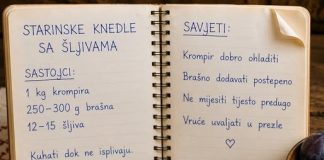 STARINSKE KNEDLE
SA ŠLJIVAMA
SASTOJCI:
1 kg krompira
250-300 g brašna
12-15 šljiva
Kuhati dok ne isplivaju.
SAVJETI:
Krompir dobro ohladiti
Brašno dodavati postepeno
Ne mijesiti tijesto predugo
Vruće uvaljati u prezle